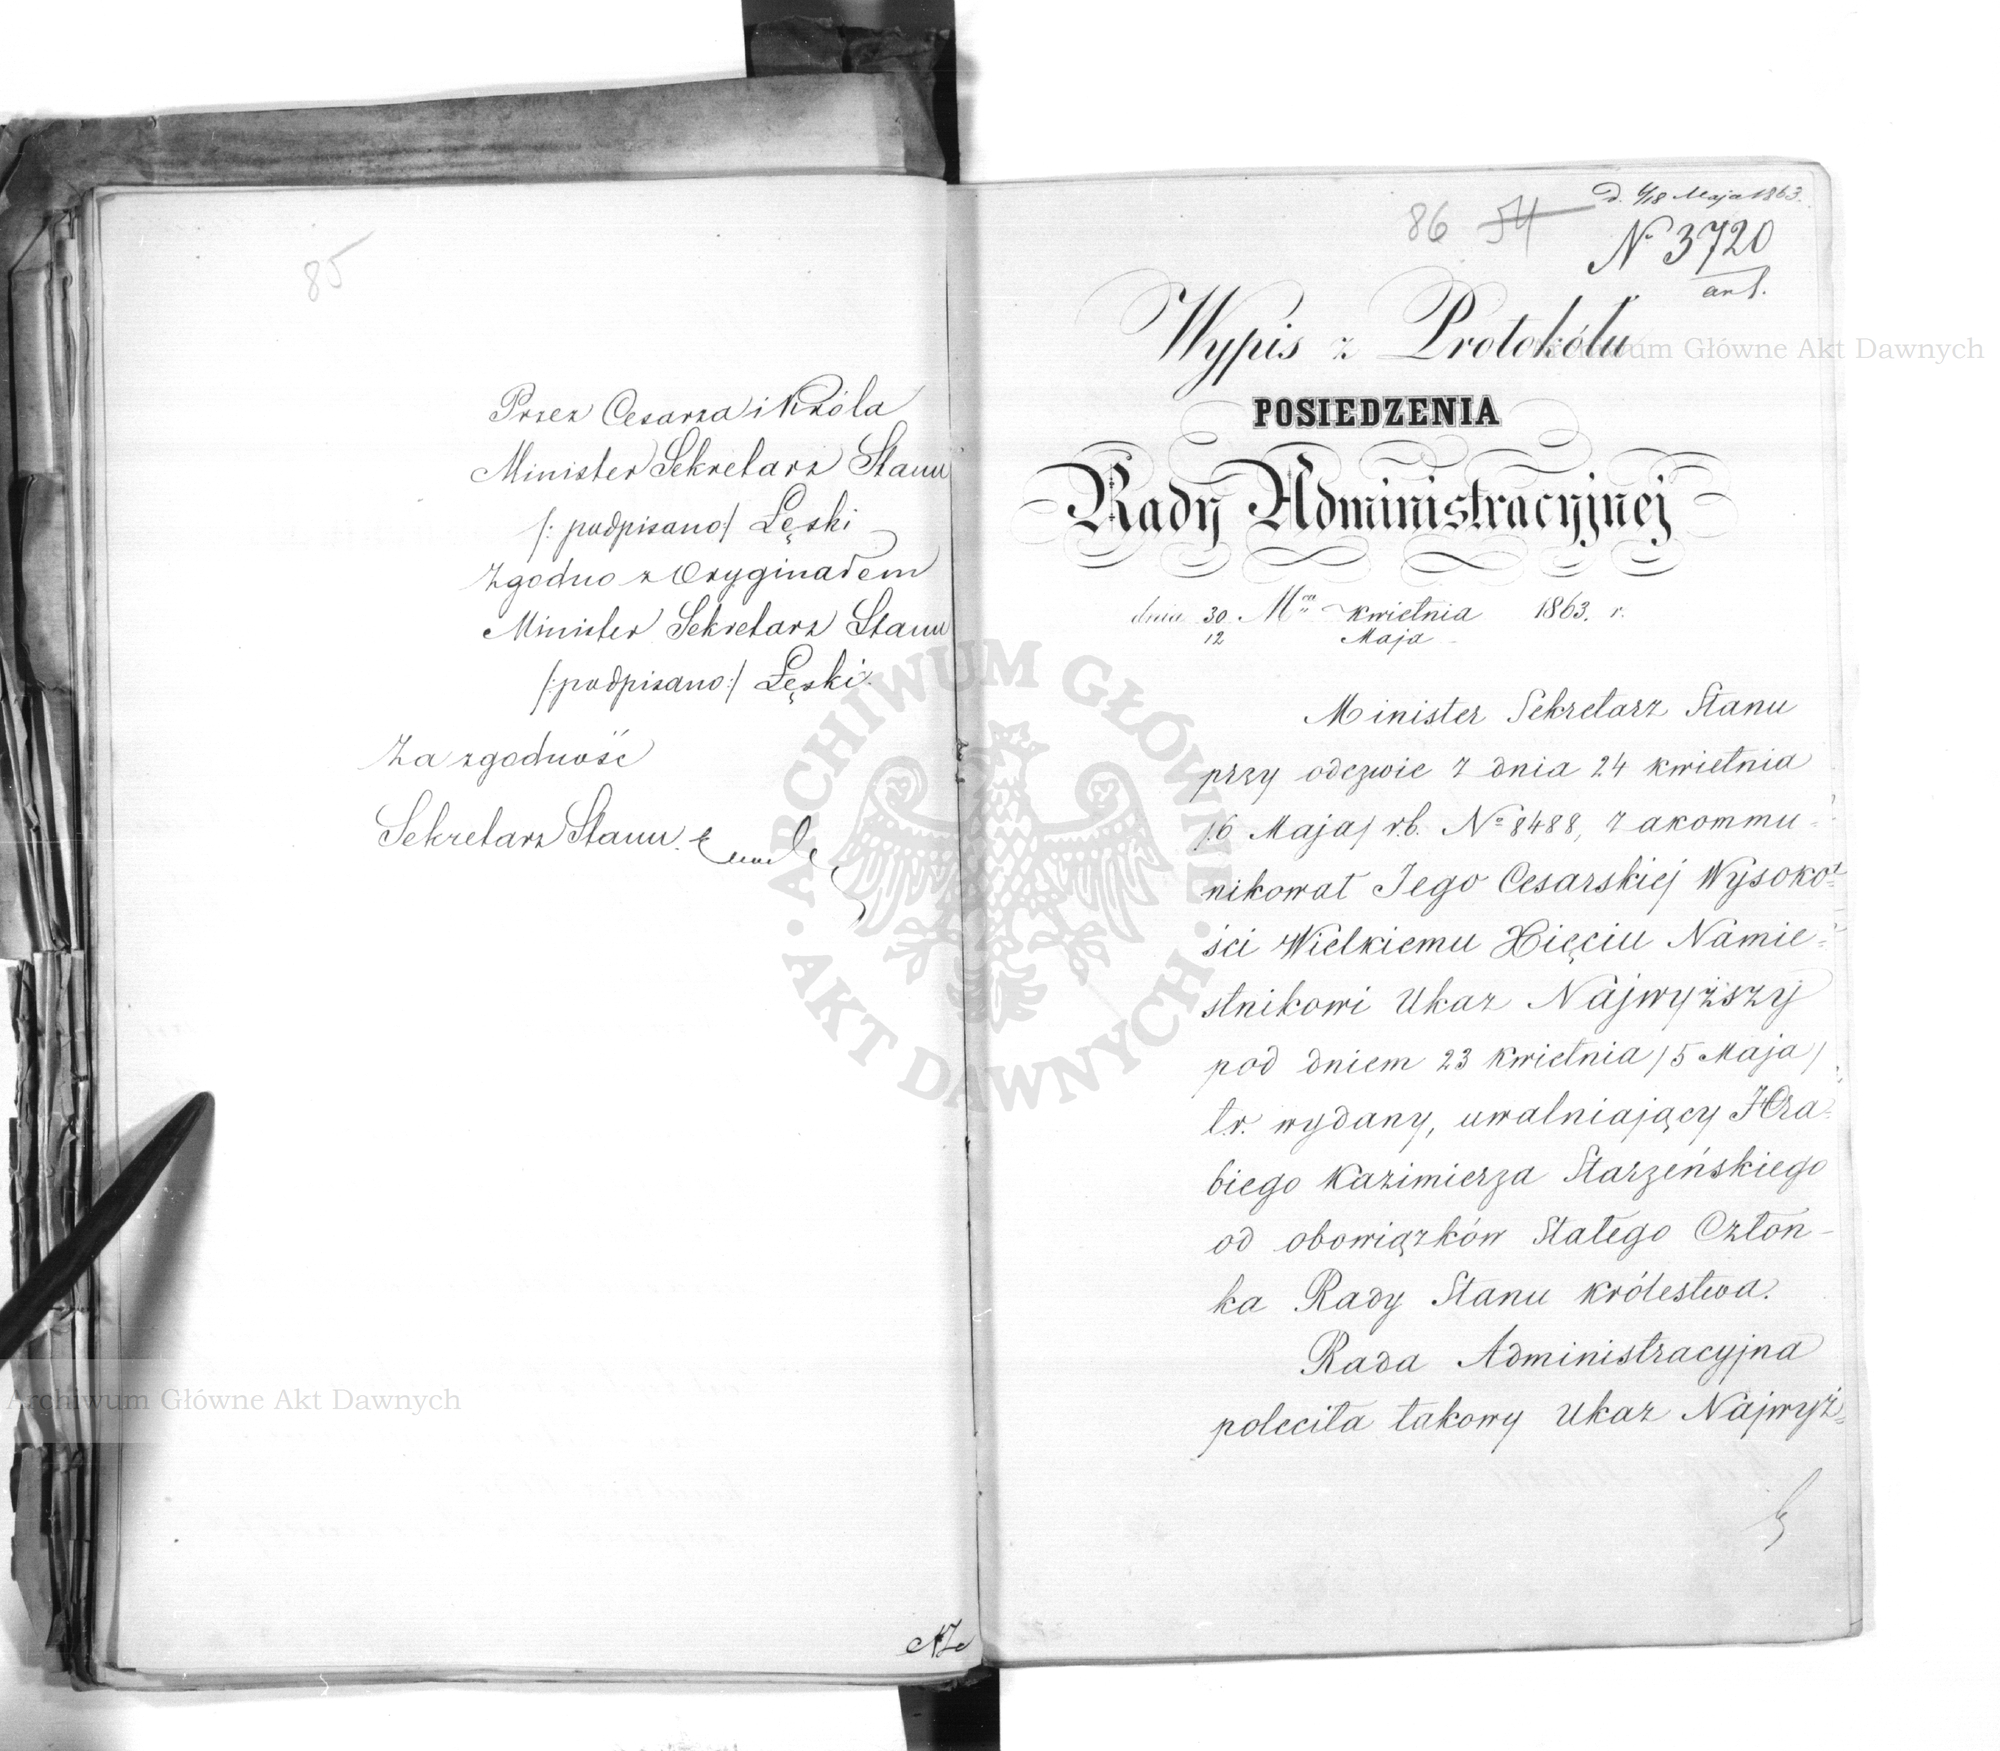 85
Przez Cesarza i Króla
Minister Sekretarz Stanu
/: podpisano:/ Łęski
Zgodno z Oryginałem
Minister Sekretarz Stanu
/:podpisano:/ Łęski.
Za zgodność
Sekretarz Stanu
86 54
D. 6/18 Maja 1863.
N 3720
Wypis z Protokółu
POSIEDZENIA
Rady Administracyjnej
dnia 30 Kwietnia 1863. r.
12 Maja
Minister Sekretarz Stanu
przy odezwie z dnia 24 Kwietnia
/6 Maja/ r.b. No 8488, zakommu-
nikował Jego Cesarskiej Wysoko-
ści Wielkiemu Xięciu Namie-
stnikowi Ukaz Najwyższy
pod dniem 23 Kwietnia /5 Maja/
t.r. wydany, uwalniający Hra-
biego Kazimierza Starzeńskiego
od obowiązków Stałego Człon-
ka Rady Stanu Królestwa.
Rada Administracyjna
poleciła takowy Ukaz Najwyż-
Archiwum Główne Akt Dawnych
ARCHIWUM GŁÓWNE AKT DAWNYCH
Archiwum Główne Akt Dawnych